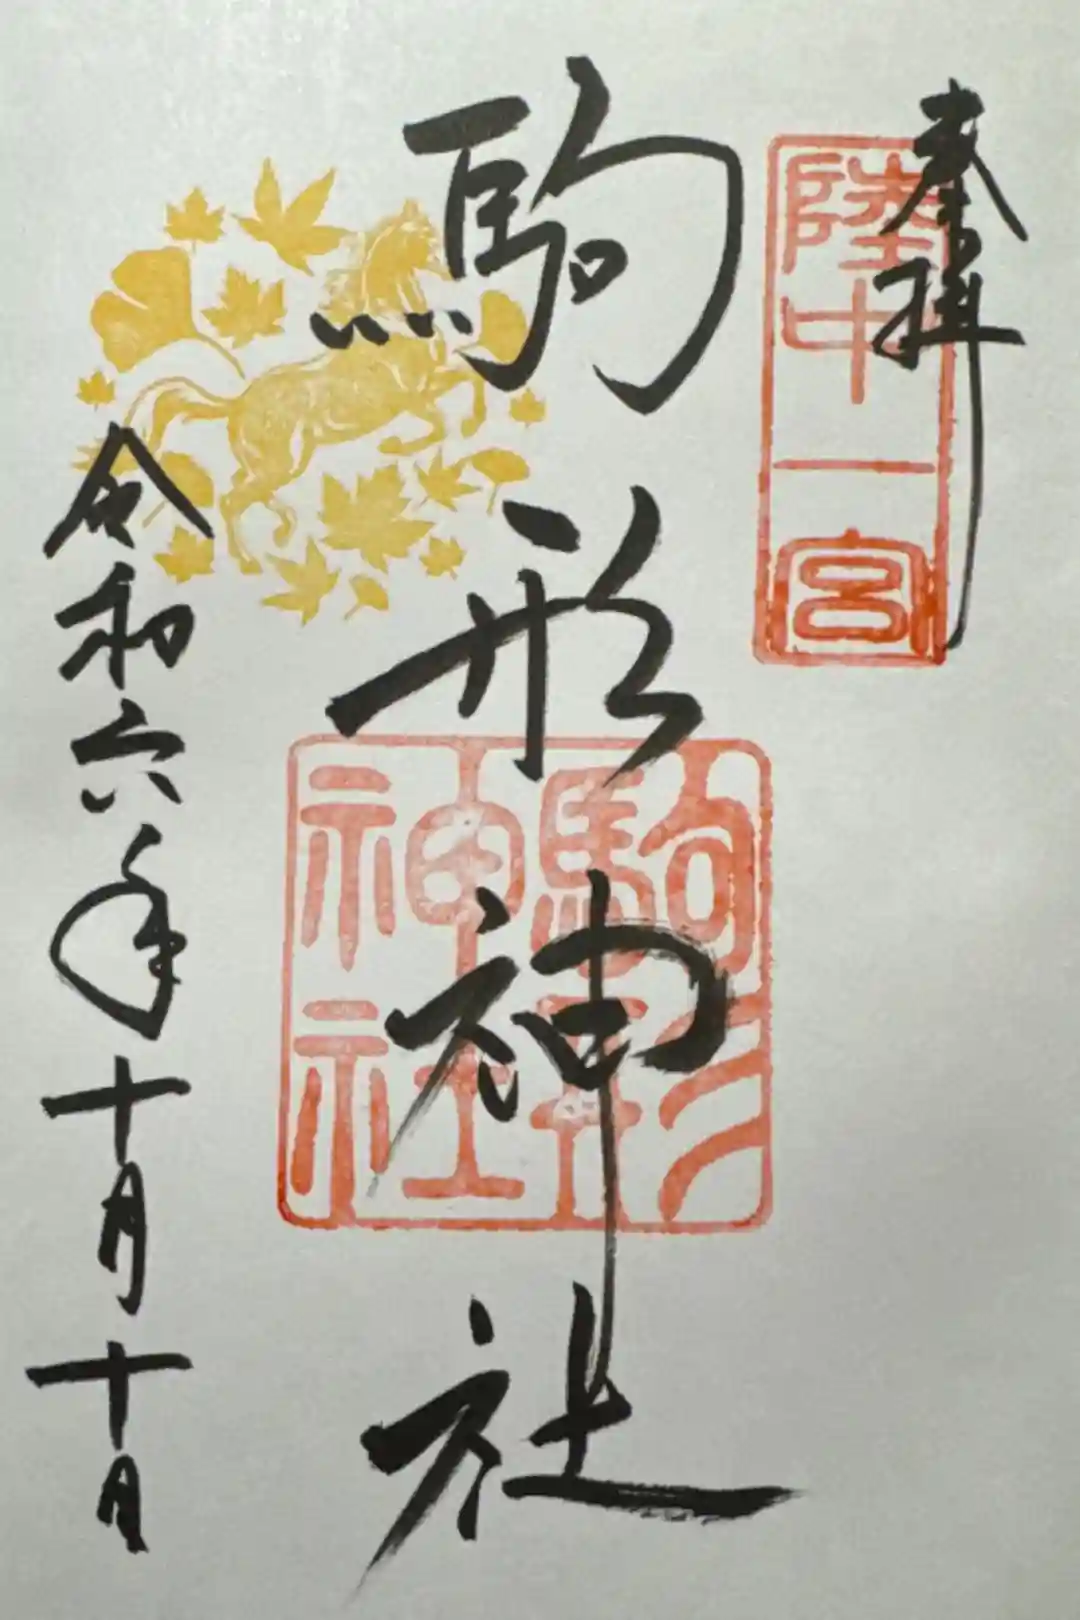 奉拝
陸中一宮
駒形神社
駒形
神社
令和六年十月十日